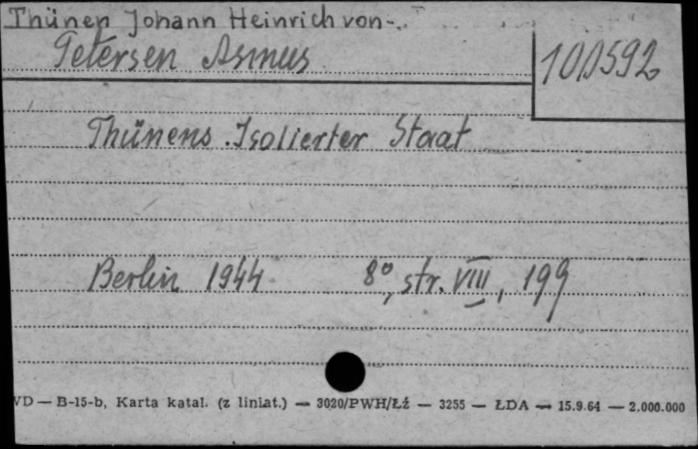 Thünen Johann Heinrich von-.
Petersen Asmus
100592
Thünens Isolierter Staat
Berlin 1944 8°, str. VIII, 199
VD — B-15-b, Karta katal. (z liniat.) — 3020/PWH/Łź — 3255 — ŁDA — 15.9.64 — 2.000.000